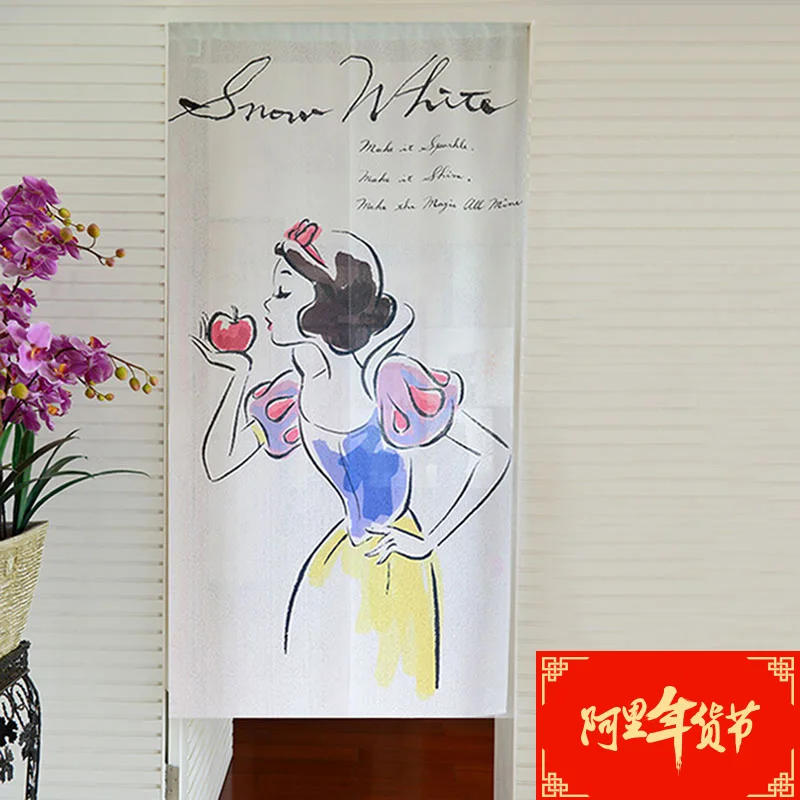 Snow White
Make it Sparkle.
Make it Shine.
Make the Magic All Mine
阿里年货节